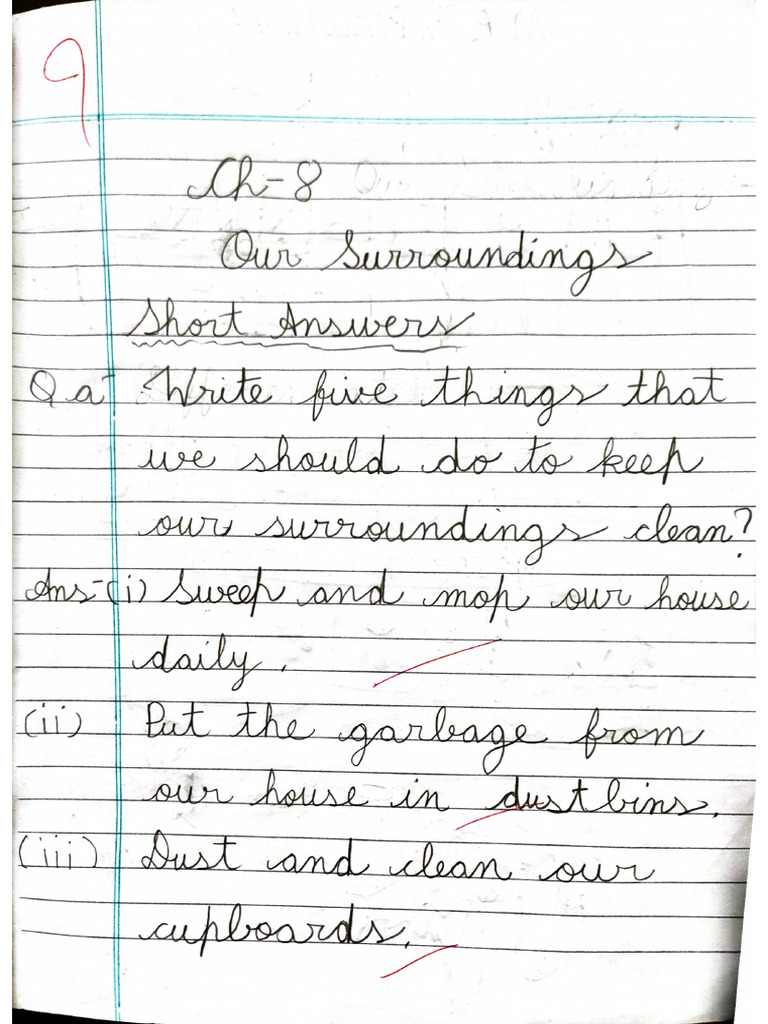 9
Ch-8
Our Surroundings
Short Answers
Q a- Write five things that
we should do to keep
our surroundings clean?
Ans-(i) Sweep and mop our house
daily.
(ii) Put the garbage from
our house in dustbins.
(iii) Dust and clean our
cupboards.